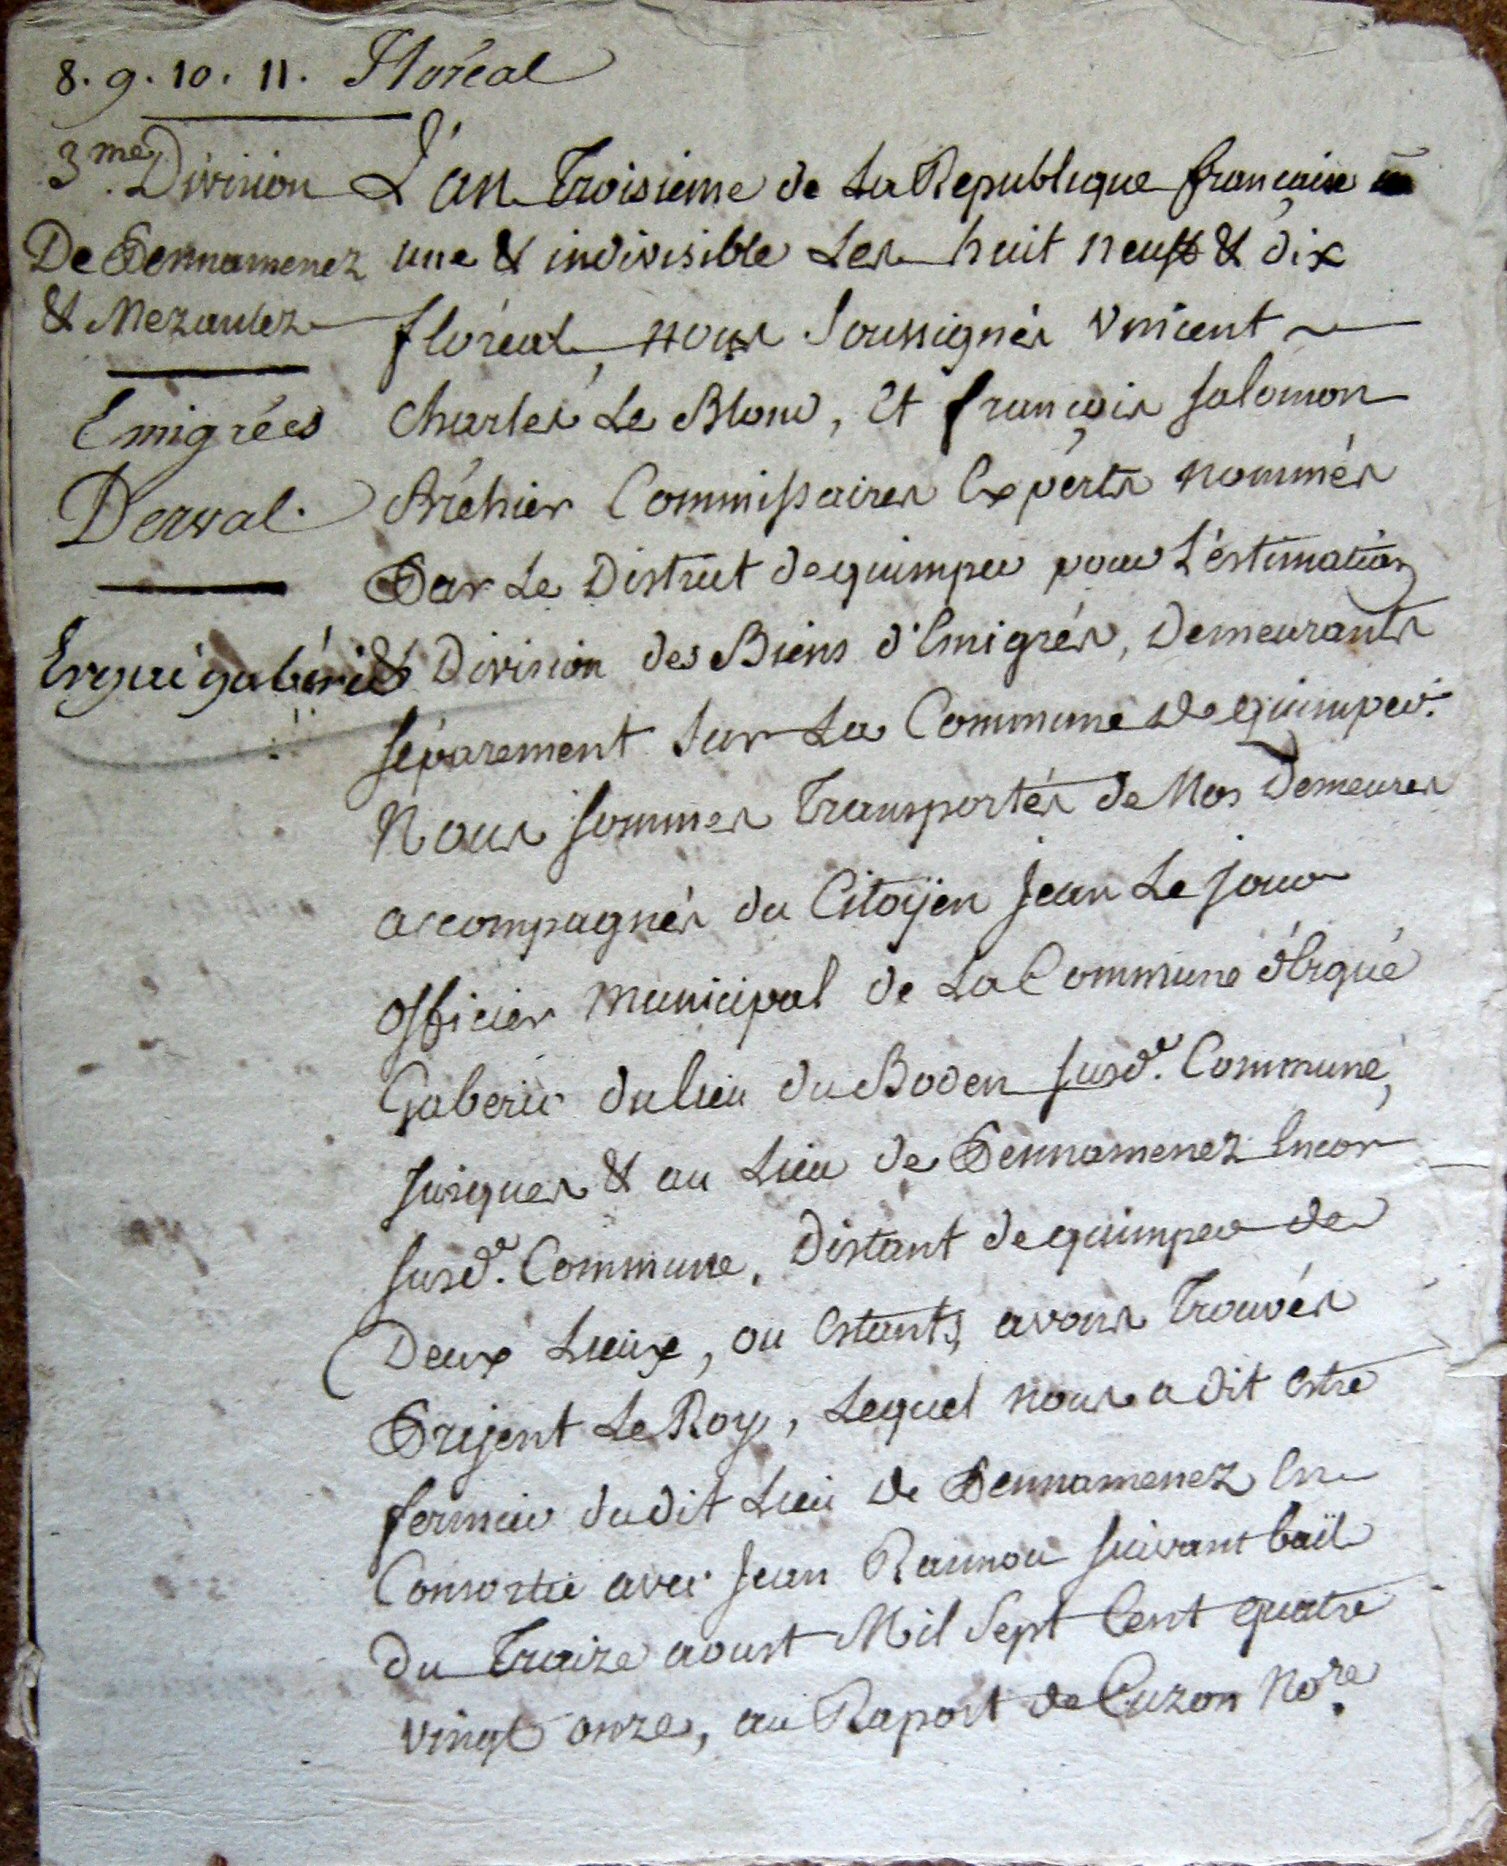 8. 9. 10. 11. Floréal
3.me Division
De Pennamenez
& Mezanlez
Emigrées
Derval.
Ergué gabéric
L'an Troisieme de La Republique françaisse
une & indivisible Les huit neuf & dix
floréal, nous Soussignés Vincent
Charles Le Blond, Et françois Salomon
Bréhier Commissaires Experts nommés
Par Le District de quimper pour L'éstimation
& Division des Biens d'Emigrés, Demeurants
séparement sur La Commune de quimper.
Nous sommes Transportés de Nos Demeures
accompagnés du Citoÿen jean Le jour
officier Municipal de La Commune d'Ergué
Gaberic du lieu du Boden susd.e Commune,
jusques & au Lieu de Pennamenez En cor
susd.e Commune, Distant de quimper de
Deux Lieux, ou Estants, avons Trouvés
Prijent Le Roy, Lequel nous a dit Estre
fermier du dit Lieu de Pennamenez En
Consortie avec jean Rannou suivant baïl
du Traize aoust Mil Sept Cent quatre
vingt onze, au Raport de Cuzon No.re